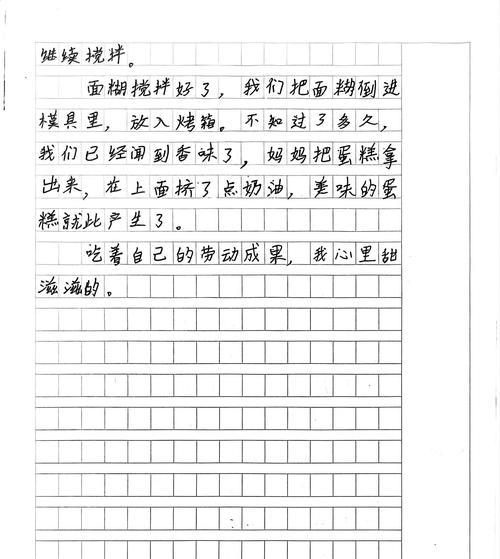 继续搅拌。
面糊搅拌好了，我们把面糊倒进
模具里，放入烤箱。不知过了多久，
我们已经闻到香味了，妈妈把蛋糕拿
出来，在上面挤了点奶油，美味的蛋
糕就此产生了。
吃着自己的劳动成果，我心里甜
滋滋的。